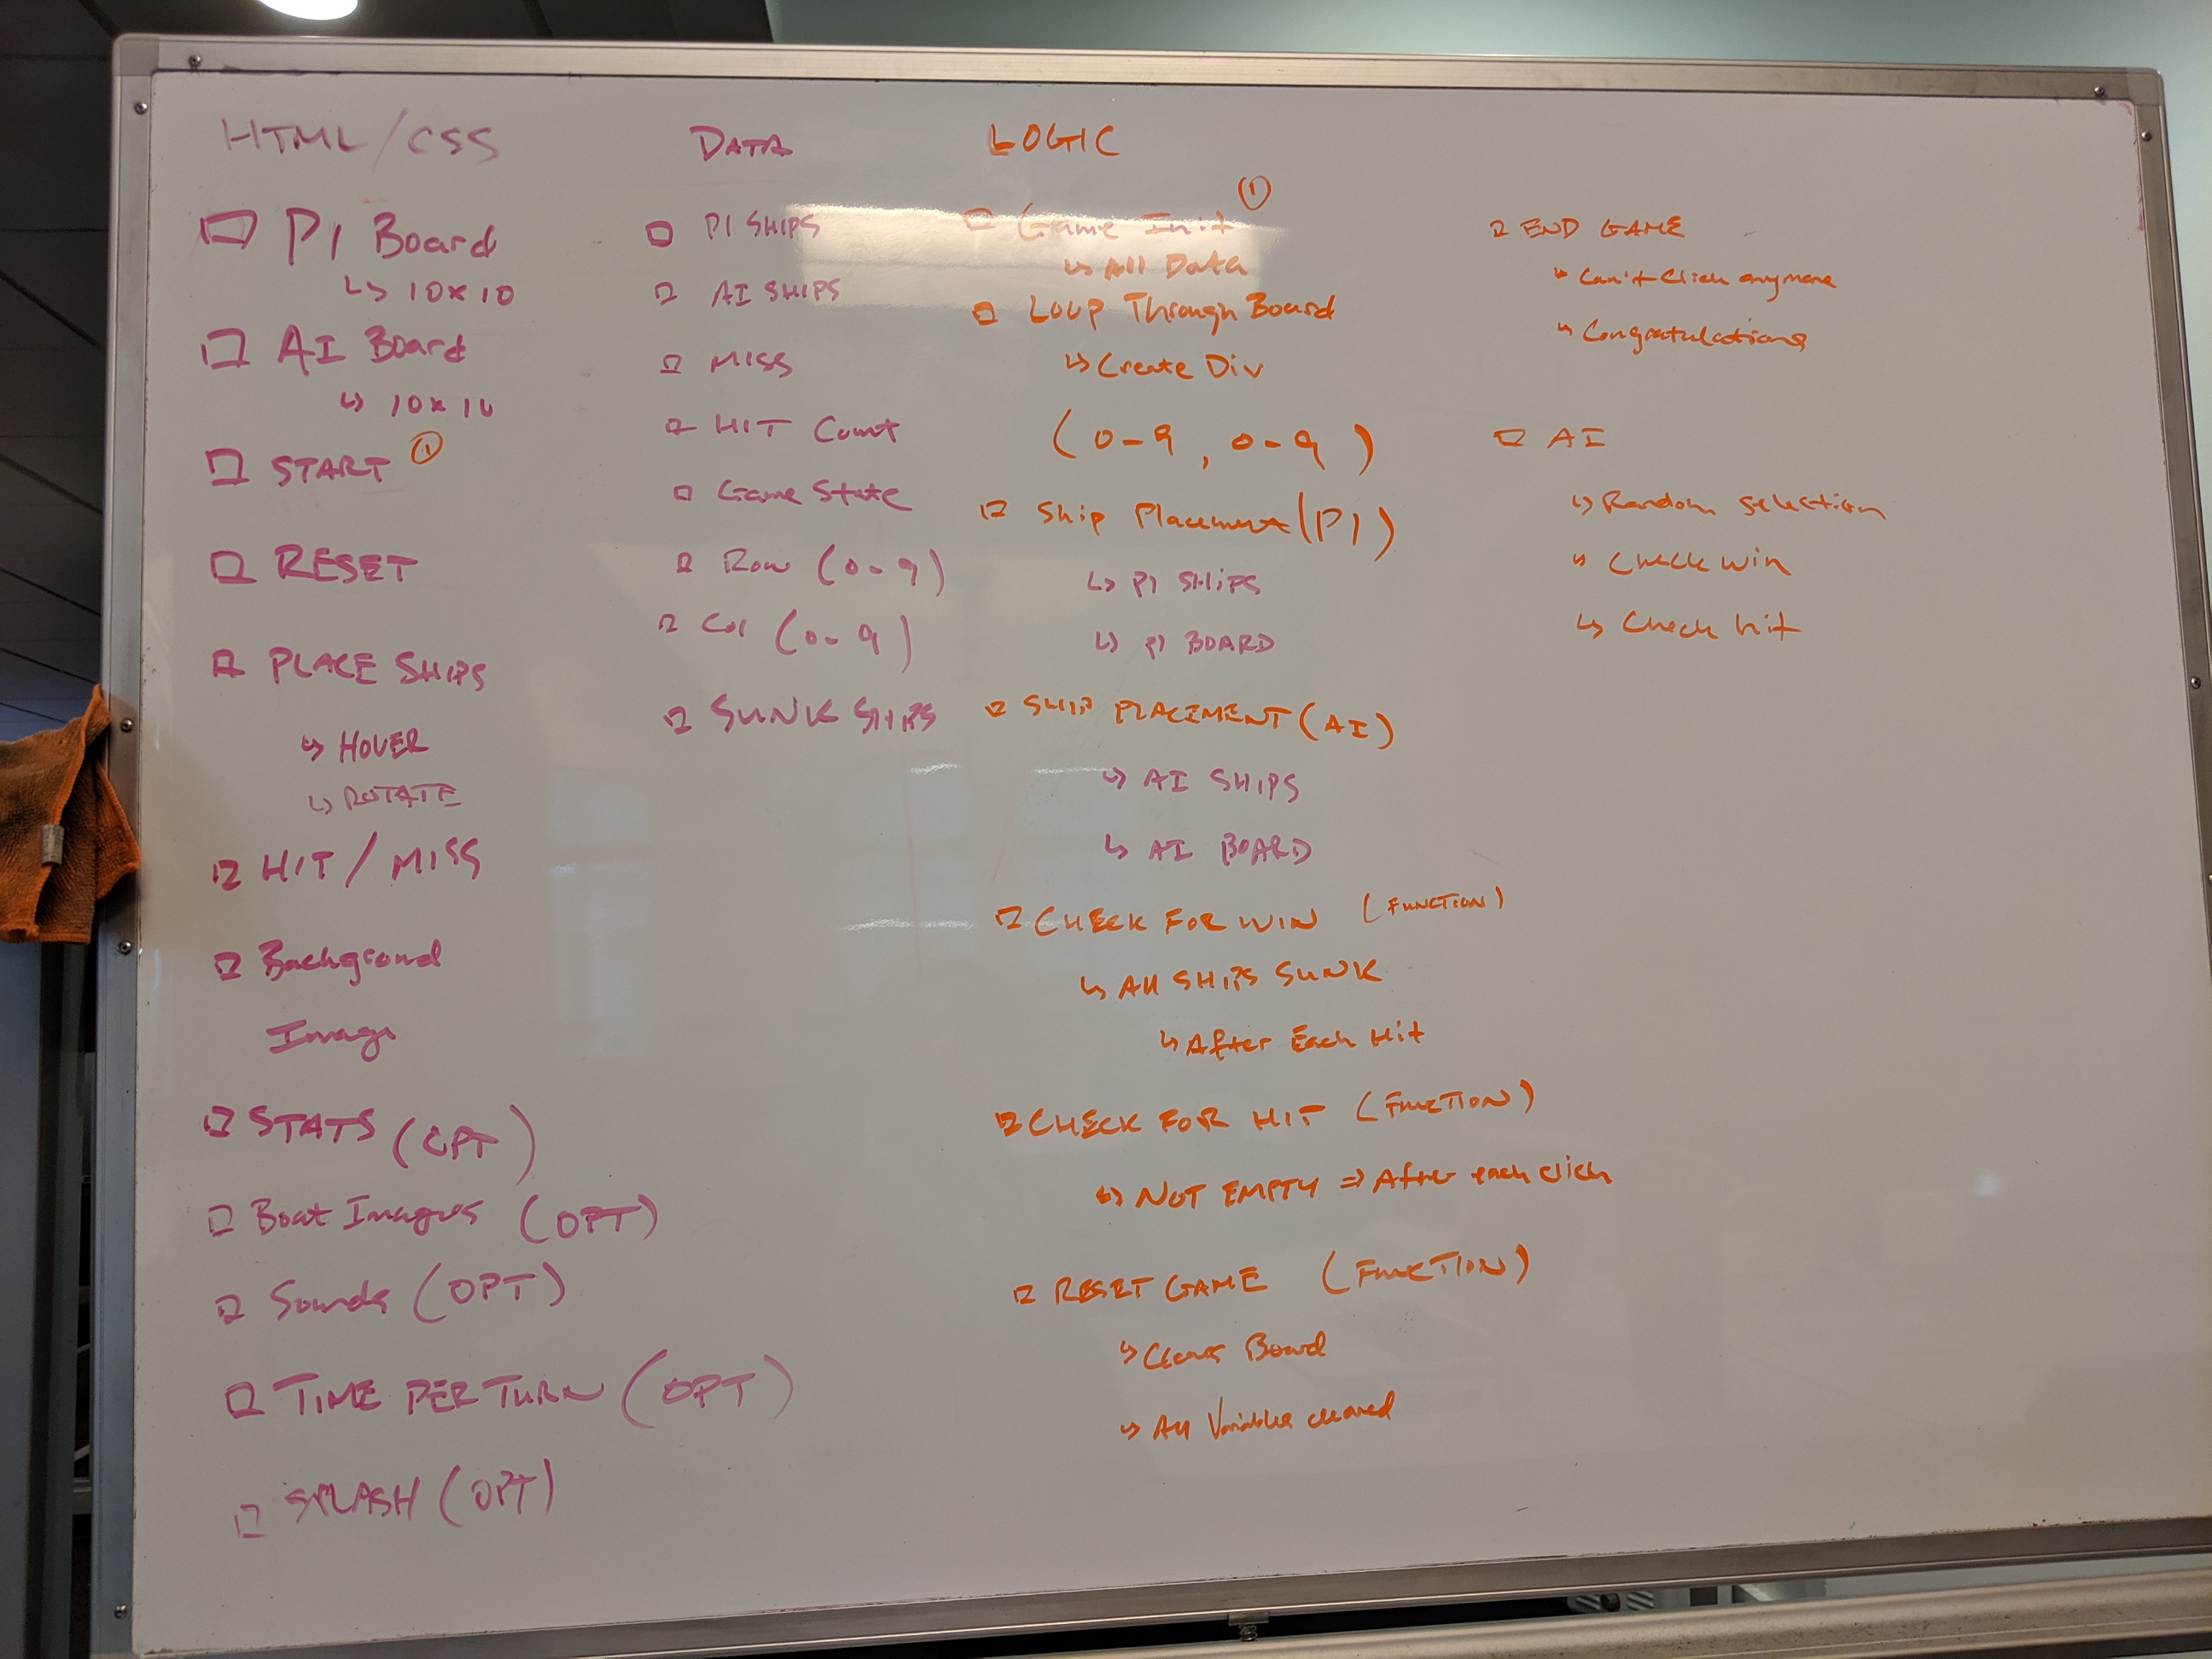 HTML/CSS
P1 Board
↳ 10x10
AI Board
↳ 10x10
START ①
RESET
PLACE SHIPS
↳ HOVER
↳ ROTATE
HIT / MISS
Background
Image
STATS (OPT)
Boat Images (OPT)
Sounds (OPT)
TIME PER TURN (OPT)
SPLASH (OPT)
DATA
P1 SHIPS
AI SHIPS
MISS
HIT Count
Game State
Row (0-9)
Col (0-9)
SUNK SHIPS
LOGIC
Game Init ①
↳ All Data
Loop Through Board
↳ Create Div
(0-9, 0-9)
Ship Placement (P1)
↳ P1 SHIPS
↳ P1 BOARD
SHIP PLACEMENT (AI)
↳ AI SHIPS
↳ AI BOARD
CHECK FOR WIN (FUNCTION)
↳ All SHIPS SUNK
↳ After Each Hit
CHECK FOR HIT (FUNCTION)
↳ NOT EMPTY => After each click
RESET GAME (FUNCTION)
↳ Clear Board
↳ All Variables cleared
END GAME
↳ Can't Click anymore
↳ Congratulations
AI
↳ Random selection
↳ Check win
↳ Check hit